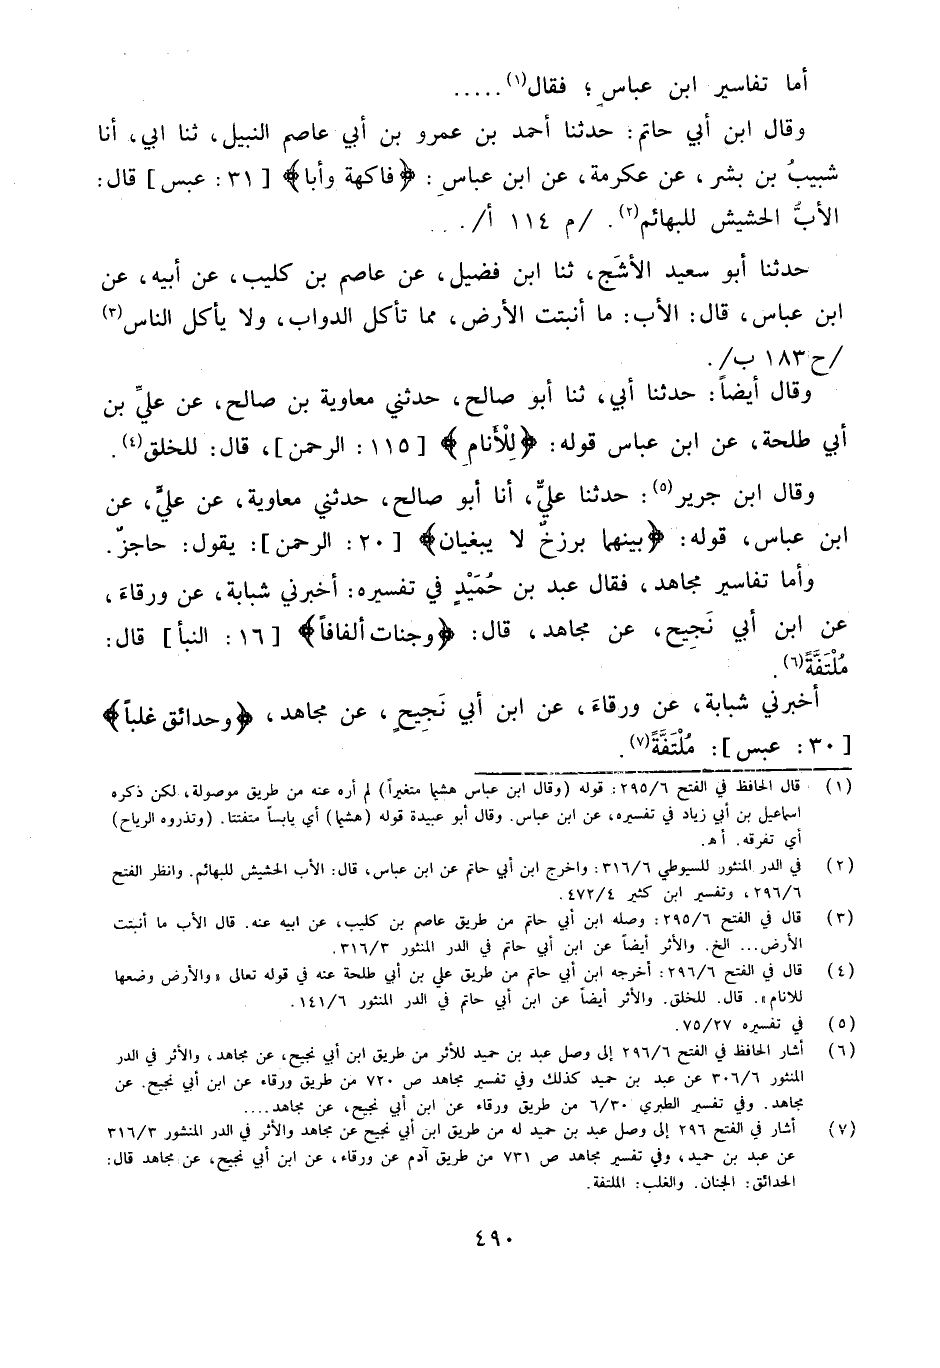 أما تفاسير ابن عباسٍ ؛ فقال(١) .....
وقال ابن أبي حاتم: حدثنا أحمد بن عمرو بن أبي عاصم النبيل، ثنا ابي، أنا
شبيبُ بن بشر، عن عكرمة، عن ابن عباسٍ: ﴿فاكهة وأبا﴾ [٣١ : عبس] قال:
الأبُّ الحشيش للبهائم(٢). /م ١١٤ أ/. ..
حدثنا أبو سعيد الأشَج، ثنا ابن فضيل، عن عاصم بن كليب، عن أبيه، عن
ابن عباس، قال: الأب: ما أنبتت الأرض، مما تأكل الدواب، ولا يأكل الناس(٣)
/ح ١٨٣ ب/.
وقال أيضاً: حدثنا أبي، ثنا أبو صالح، حدثني معاوية بن صالح، عن عليِّ بن
أبي طلحة، عن ابن عباس قوله: ﴿لِلْأَنامِ﴾ [١١٥ : الرحمن]، قال: للخلق(٤).
وقال ابن جرير(٥): حدثنا عليٌّ، أنا أبو صالح، حدثني معاوية، عن عليٍّ، عن
ابن عباس، قوله: ﴿بينهما برزخٌ لا يبغيان﴾ [٢٠ : الرحمن]: يقول: حاجزٌ.
وأما تفاسير مجاهد، فقال عبد بن حُمَيْدٍ في تفسيره: أخبرني شبابة، عن ورقاءَ،
عن ابن أبي نَجيح، عن مجاهد، قال: ﴿وجنات ألفافاً﴾ [١٦ : النبأ] قال:
مُلْتَفَّةً(٦).
أخبرني شبابة، عن ورقاءَ، عن ابن أبي نَجيحٍ، عن مجاهد، ﴿وحدائق غلباً﴾
[٣٠ : عبس]: مُلْتَفَّةً(٧).
(١) قال الحافظ في الفتح ٢٩٥/٦: قوله (وقال ابن عباس هشيما متغيراً) لم أره عنه من طريق موصولة، لكن ذكره
اسماعيل بن أبي زياد في تفسيره، عن ابن عباس. وقال أبو عبيدة قوله (هشيما) أي يابساً متفتتا. (وتذروه الرياح)
أي تفرقه. أ هـ.
(٢) في الدر المنثور للسيوطي ٣١٦/٦: واخرج ابن أبي حاتم عن ابن عباس، قال: الأب الحشيش للبهائم. وانظر الفتح
٢٩٦/٦، وتفسير ابن كثير ٤٧٢/٤.
(٣) قال في الفتح ٢٩٥/٦: وصله ابن أبي حاتم من طريق عاصم بن كليب، عن ابيه عنه. قال الأب ما أنبتت
الأرض... الخ. والأثر أيضاً عن ابن أبي حاتم في الدر المنثور ٣١٦/٣.
(٤) قال في الفتح ٢٩٦/٦: أخرجه ابن أبي حاتم من طريق علي بن أبي طلحة عنه في قوله تعالى «والأرض وضعها
للانام». قال. للخلق. والأثر أيضاً عن ابن أبي حاتم في الدر المنثور ١٤١/٦.
(٥) في تفسيره ٧٥/٢٧.
(٦) أشار الحافظ في الفتح ٢٩٦/٦ إلى وصل عبد بن حميد للأثر من طريق ابن أبي نجيح، عن مجاهد، والأثر في الدر
المنثور ٣٠٦/٦ عن عبد بن حميد كذلك وفي تفسير مجاهد ص ٧٢٠ من طريق ورقاء عن ابن أبي نجيح. عن
مجاهد. وفي تفسير الطبري ٦/٣٠ من طريق ورقاء عن ابن أبي نجيح، عن مجاهد....
(٧) أشار في الفتح ٢٩٦ إلى وصل عبد بن حميد له من طريق ابن أبي نجيح عن مجاهد والأثر في الدر المنثور ٣١٦/٣
عن عبد بن حميد، وفي تفسير مجاهد ص ٧٣١ من طريق آدم عن ورقاء، عن ابن أبي نجيح، عن مجاهد قال:
الحدائق: الجنان. والغلب: الملتفة.
٤٩٠